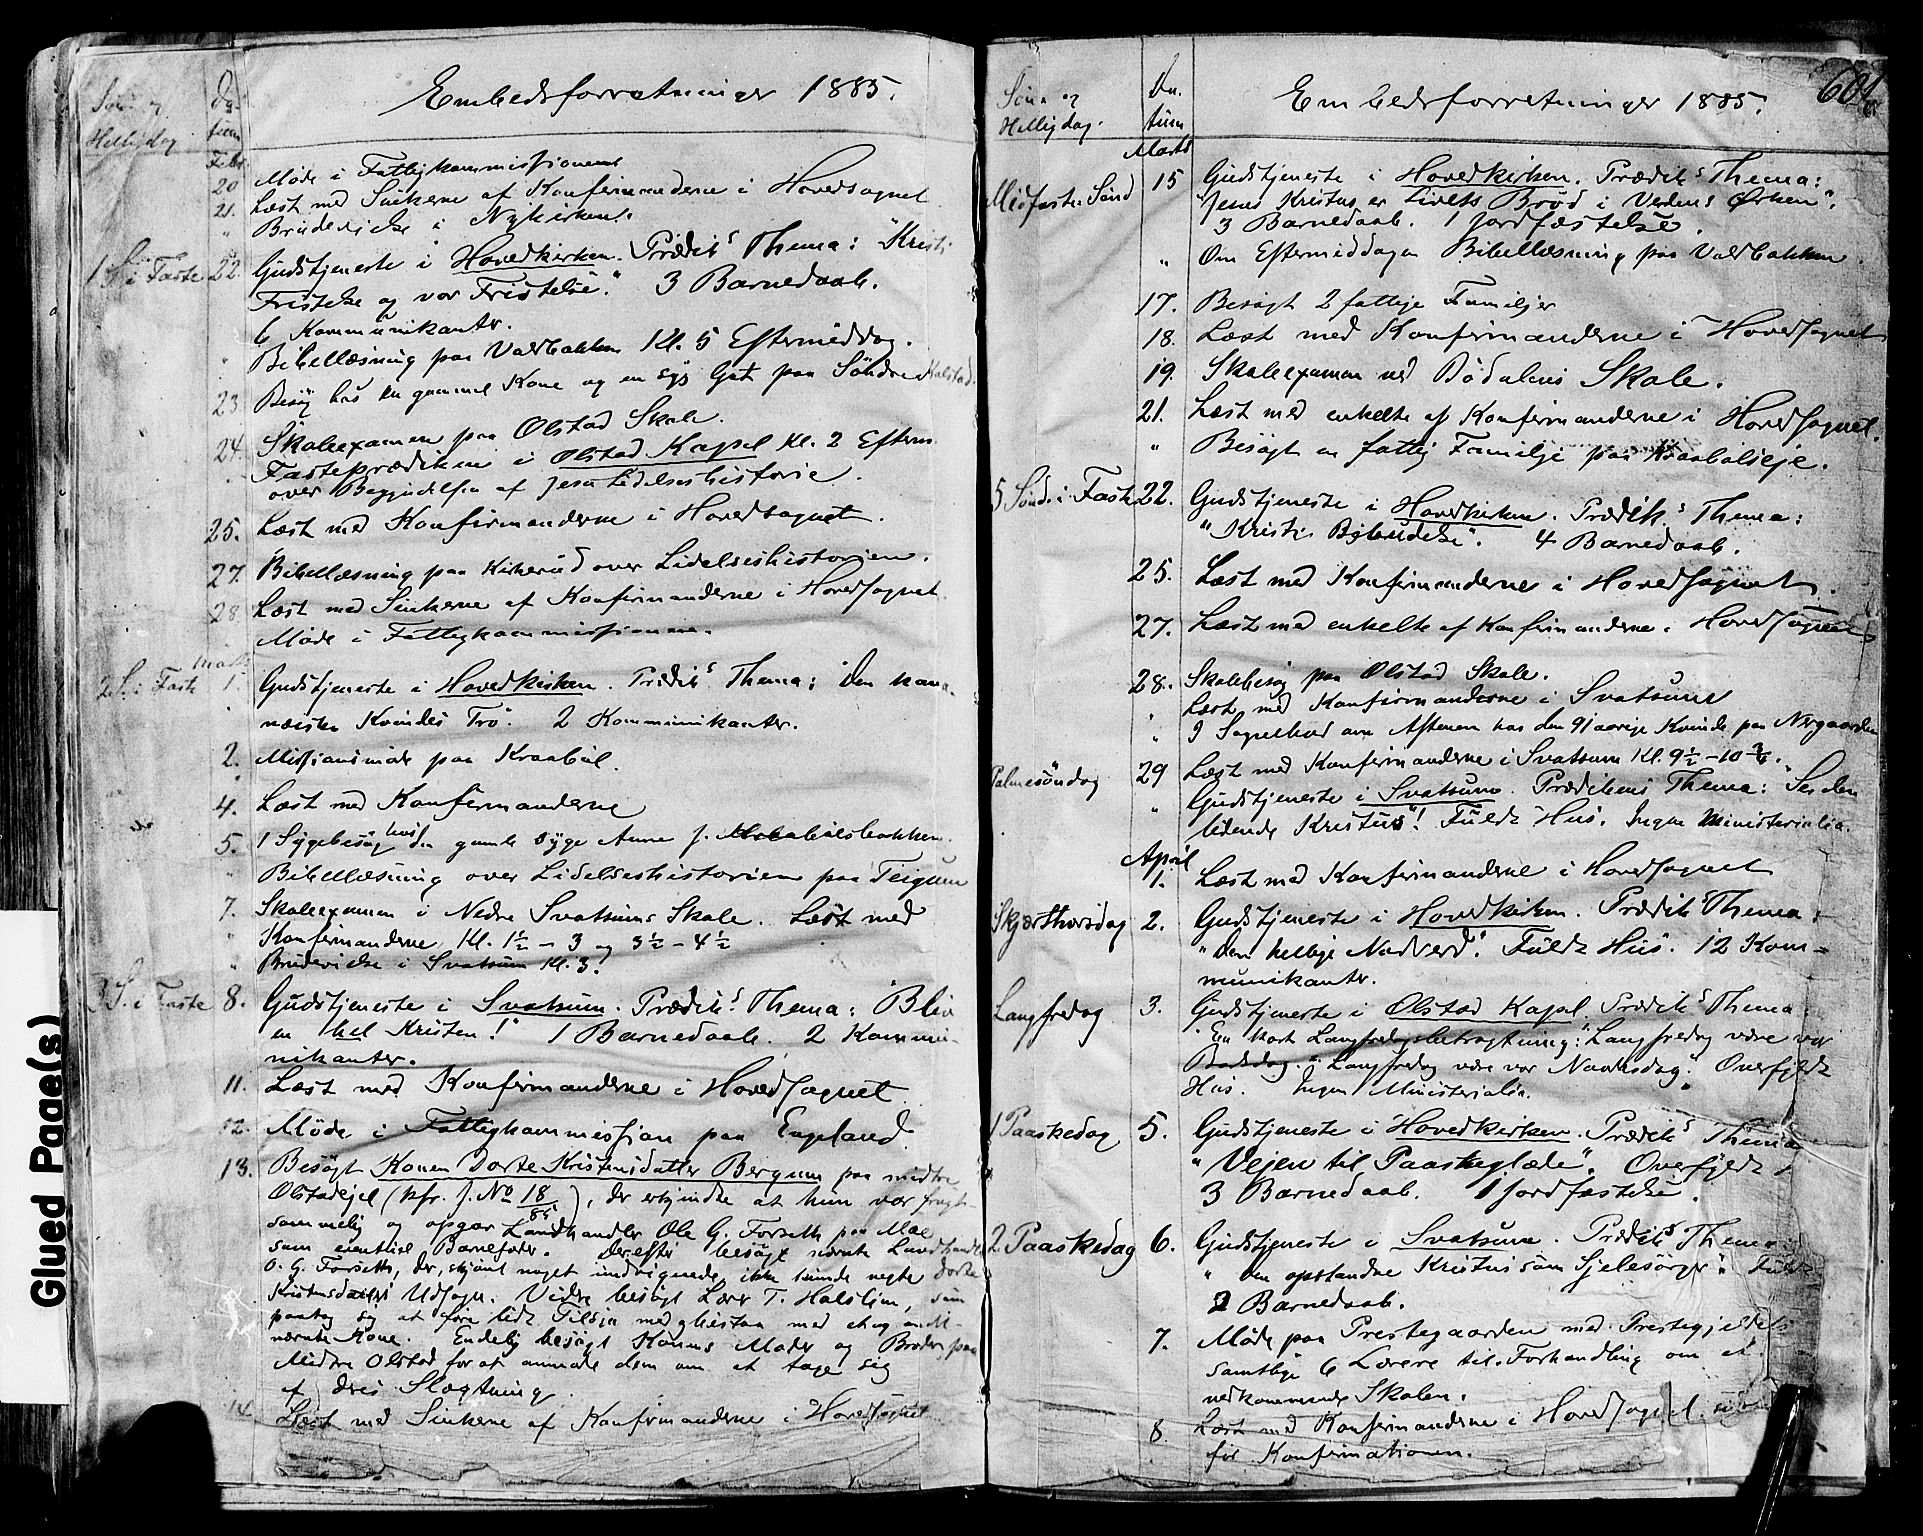 Embedsforretninger 1885.
Søn- og Helligdag
Datum
Febr.
20 Møde i Fattigkommissionen
21. Læst med Sinkerne af Konfirmanderne i Hovedsognet.
" Brudevielse i Nykirken.
1 S. i Faste 22. Gudstjeneste i Hovedkirken. Prædik<sup>s</sup> Thema: "Kristi
Fristelse og vor Fristelse". 3 Barnedaab.
6 Kommunikanter.
" Bibellæsning paa Valbakken Kl. 5 Eftermiddag.
23. Besøg hos en gammel Kone og en syg Gut paa Søndre
24. Skoleexamen paa Olstad Skole.
" Fasteprædiken i Olstad Kapel Kl. 2 Efterm.
over Begyndelsen af Jesu Lidelseshistorie.
25. Læst med Konfirmanderne i Hovedsognet.
27. Bibellæsning paa Kikerud over Lidelseshistorien.
28. Læst med Sinkerne af Konfirmanderne i Hovedsognet.
Møde i Fattigkommissionen.
Marts
2 S. i Faste 1. Gudstjeneste i Hovedkirken. Prædik<sup>s</sup> Thema: Den kana-
næiske Kvindes Tro". 2 Kommunikanter.
2. Missionsmøde paa Kraabøl.
4. Læst med Konfirmanderne
5. 1 Sygebesøg hos den gamle syge Anne J.
" Bibellæsning over Lidelseshistorien paa Teigum
7. Skoleexamen i Nedre Svatsums Skole. Læst med
" Konfirmanderne Kl. 1½ – 3 og 3½ – 4½
" Brudevielse i Svatsum Kl. 3.
3 S. i Faste 8. Gudstjeneste i Svatsum. Prædik<sup>s</sup> Thema: "Bliv
en hel Kristen!" 1 Barnedaab. 2 Kommu-
nikanter.
11. Læst med Konfirmanderne i Hovedsognet.
12. Møde i Fattigkommission paa Engeland.
13. Besøgt Konen Dorte Kristensdatter Bergum paa midtre
Olstadejet (kfr. J. No 18/85), der erkjendte at hun var frugt-
sommelig og opgav Landhandler Ole G. Forseth paa Moe
som eventuel Barnefader. Derefter besøgt nævnte Landhandler
O. G. Forseth, der, skjønt noget undvigende, ikke kunde negte Dorte
Kristensdatters Udsagn. Videre besøgt Lærer T. Halsteen, som
paatog sig at føre lidt Tilsyn med
nævnte Kone. Endelig besøgt Konens Moder og Broder paa
Midtre Olstad for at anmode dem om at tage sig
af deres Slægtning.
14. Læst med Sinkerne af Konfirmanderne i Hovedsognet
Embedsforretninger 1885.
601
Søn- og Helligdag.
Datum
Marts
Midfaste Sønd 15 Gudstjeneste i Hovedkirken. Prædik<sup>s</sup> Thema:
"Jesus Kristus er Livets Brød i Verdens Ørken".
3 Barnedaab. 1 Jordfæstelse.
" Om Eftermiddagen Bibellæsning paa Valbakken.
17. Besøgt 2 fattige Familjer
18. Læst med Konfirmanderne i Hovedsognet
19. Skoleexamen ved Bødalens Skole.
21. Læst med enkelte af Konfirmanderne i Hovedsognet.
" Besøgt en fattig Familje paa Kraabølseje.
5 Sønd. i Faste 22. Gudstjeneste i Hovedkirken. Prædik<sup>s</sup> Thema:
"Kristi Bebudelse". 4 Barnedaab.
25. Læst med Konfirmanderne i Hovedsognet.
27. Læst med enkelte af Konfirmanderne i Hovedsognet
28. Skolebesøg paa Olstad Skole.
" Læst med Konfirmanderne i Svatsum
" I Sognebud om Aftenen hos den 91 aarige Kvinde paa Nørgaarden
Palmesøndag 29 Læst med Konfirmanderne i Svatsum Kl. 9½ – 10¾.
" Gudstjeneste i Svatsum. Prædikens Thema: "Se den
lidende Kristus"! Fuldt Hus. Ingen Ministerialia.
April
1. Læst med Konfirmanderne i Hovedsognet
Skjærthorsdag 2. Gudstjeneste i Hovedkirken. Prædik<sup>s</sup> Thema:
"Den hellige Nadverd". Fuldt Hus. 12 Kom-
munikanter.
Langfredag 3. Gudstjeneste i Olstad Kapel. Prædik<sup>s</sup> Thema
"En kort Langfredagsbetragtning": Langfredag være vor
Bodsdag. Langfredag være vor Naadesdag". Overfyldt
Hus. Ingen Ministerialia.
1 Paaskedag 5. Gudstjeneste i Hovedkirken. Prædik<sup>s</sup> Thema
"Vejen til Paaskeglæde". Overfyldt
3 Barnedaab. 1 Jordfæstelse.
2. Paaskedag 6. Gudstjeneste i Svatsum. Prædik<sup>s</sup> Thema
"Den opstandne Kristus som Sjelesørger". Fuldt
2 Barnedaab.
7. Møde paa Prestegaarden med Prestegjeldets
samtlige 6 Lærere til Forhandling om et
vedkommende Skolen.
8. Læst med Konfirmanderne i Hovedsognet
før Konfirmationen.
Glued Page(s)